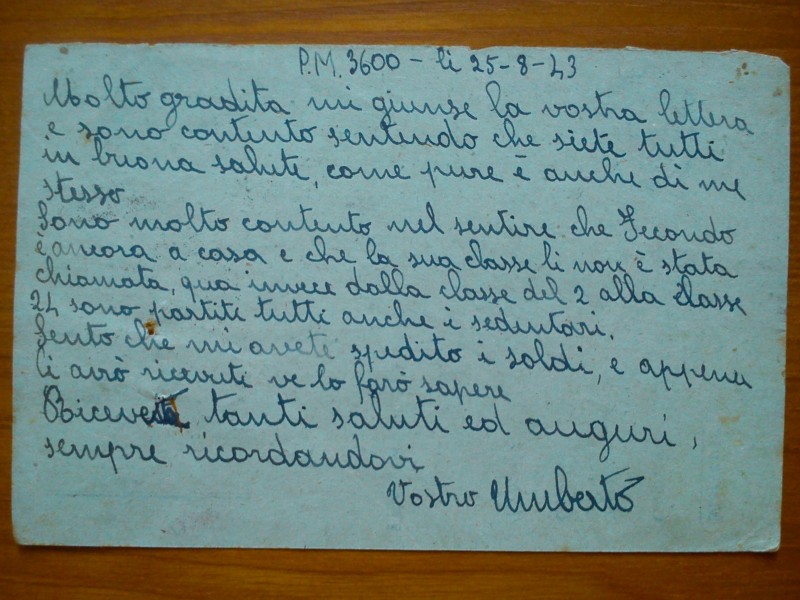 P.M. 3600 - li 25-8-43
Molto gradita mi giunse la vostra lettera
e sono contento sentendo che siete tutti
in buona salute, come pure è anche di me
stesso
Sono molto contento nel sentire che Secondo
è ancora a casa e che la sua classe li non è stata
chiamata, qua invece dalla classe del 2 alla classe
24 sono partiti tutti anche i sedentari.
Sento che mi avete spedito i soldi, e appena
li avrò ricevuti ve lo farò sapere
Ricevete tanti saluti ed auguri,
sempre ricordandovi
Vostro Umberto